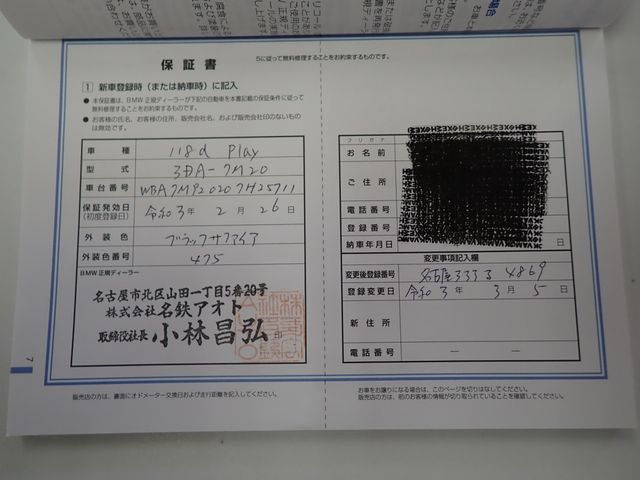 保証書
5に従って無料修理することをお約束するものです。
1 新車登録時(または納車時)に記入
● 本保証書は、BMW正規ディーラーが下記の自動車を本書記載の保証条件に従って
無料修理することをお約束するものです。
● お客様の氏名、お客様の住所、販売会社名、および販売会社印のないもの
は無効です。
車種 118d Play
型式 3DA-7M20
車台番号 WBA7MP20207H25711
保証発効日 令和3年 2月 26日
(初度登録日)
外装色 ブラックサファイア
外装色番号 475
BMW正規ディーラー
名古屋市北区山田一丁目5番20号
株式会社 名鉄アオト
取締役社長 小林昌弘 印
フリガナ
お名前
ご住所
電話番号
登録番号
納車年月日 日
変更事項記入欄
変更後登録番号 名古屋 4869
登録変更日 令和3年 3月 5日
新住所
電話番号 ― ―
7
販売店の方は、裏面にオドメーター交換日および走行距離を記入してください。
お車をお譲りになる場合は、このページを切りはなしてください。
販売店の方は、前のお客様の情報が切り取られていることを確認してください。